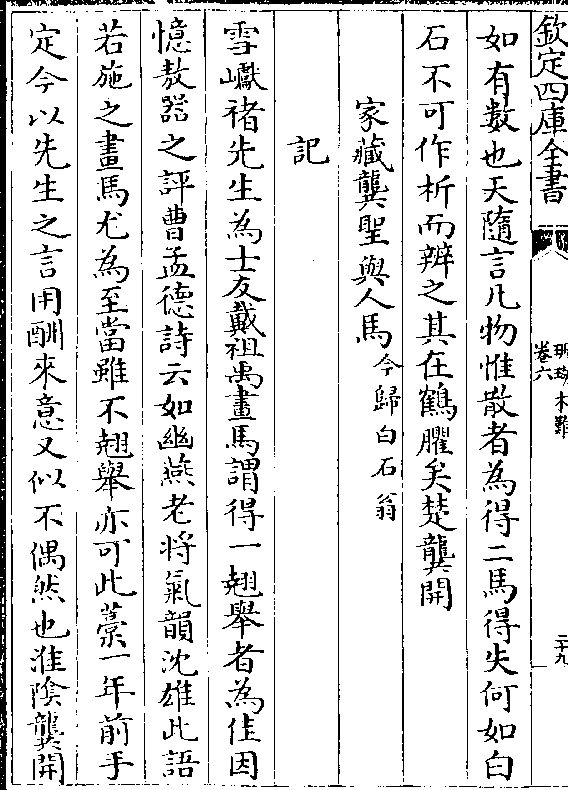 欽定四庫全書
珊瑚木難
卷六
二十九
如有數也天隨言凡物惟散者為得二馬得失何如白
石不可作析而辨之其在鶴臞矣楚龔開
家藏龔聖與人馬今歸白石翁
記
雪巘禇先生為士友戴祖禹畫馬謂得一翹舉者為佳因
憶敖器之評曹孟德詩云如幽燕老將氣韻沈雄此語
若施之畫馬尤為至當雖不翹舉亦可此藁一年前手
定今以先生之言用酬來意又似不偶然也淮陰龔開